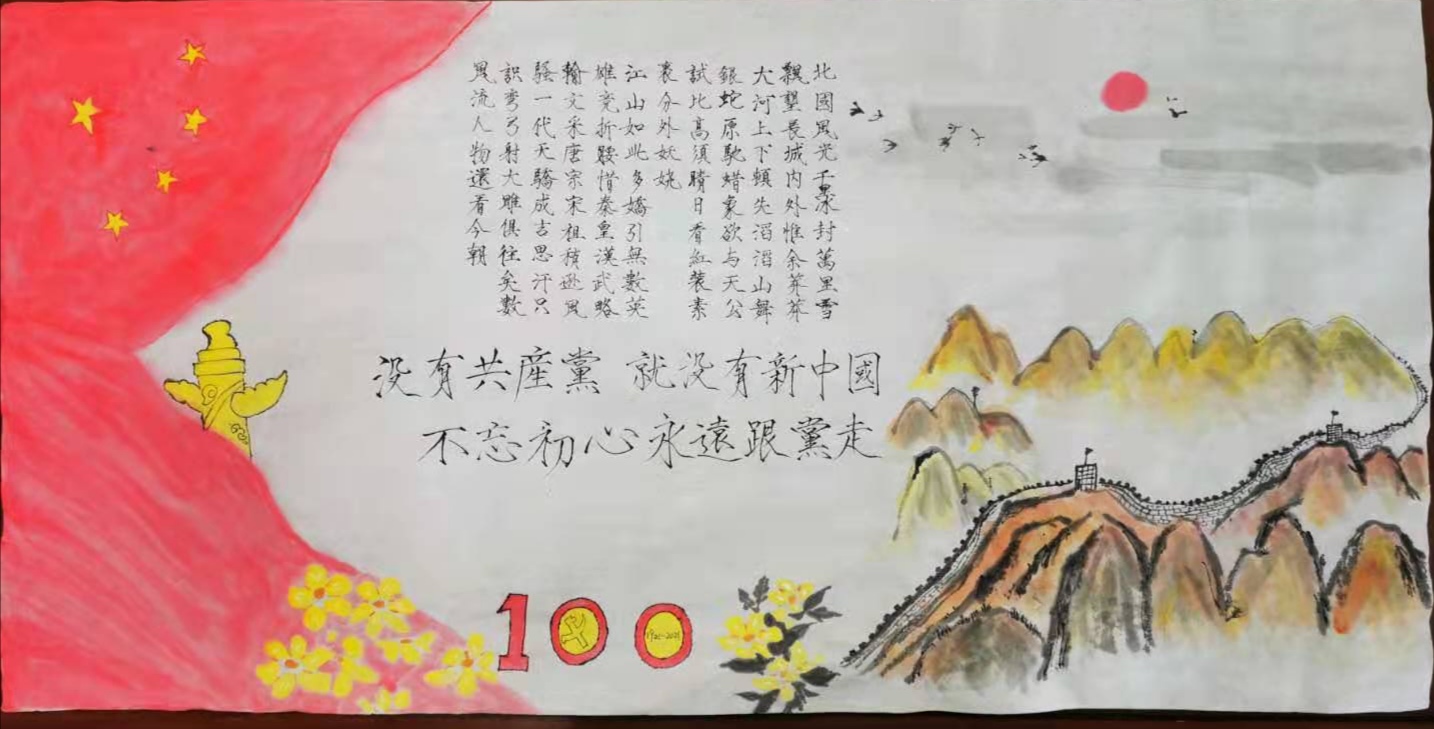 北國風光千里冰封萬里雪
飄望長城内外惟余莽莽
大河上下頓失滔滔山舞
銀蛇原馳蜡象欲与天公
試比高須晴日看紅裝素
裹分外妖娆
江山如此多嬌引無數英
雄竞折腰惜秦皇漢武略
輸文采唐宗宋祖稍遜風
騷一代天驕成吉思汗只
識彎弓射大雕俱往矣數
風流人物還看今朝
没有共産黨 就没有新中國
不忘初心永遠跟黨走
100
1921-2021